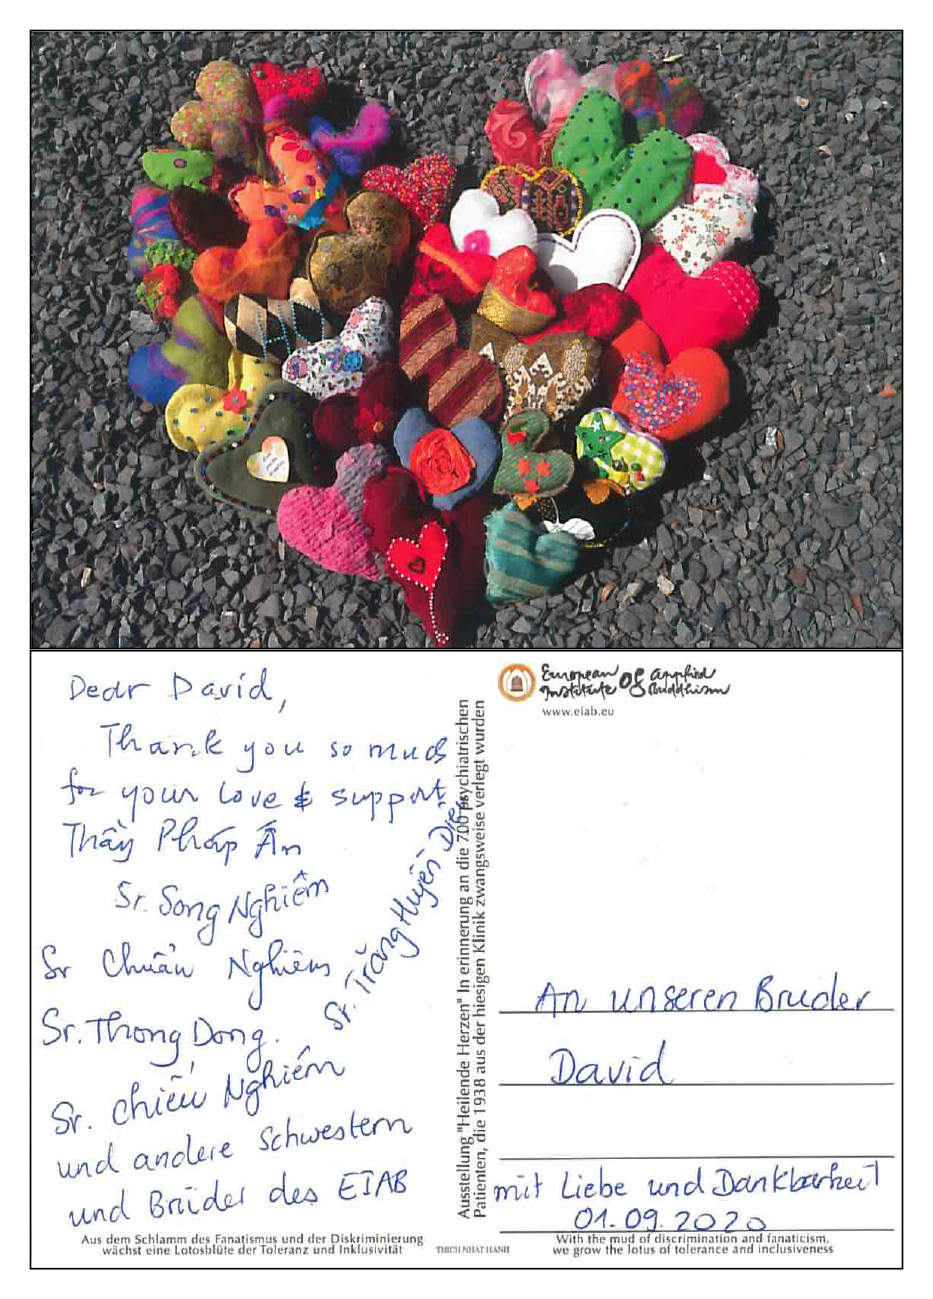 Dear David,
Thank you so much
for your love & support.
Thầy Pháp Ấn
Sr. Song Nghiêm
Sr Chuẩn Nghiêm
Sr. Trăng Huyền Diệu
Sr. Thong Dong.
Sr. Chiếu Nghiêm
und andere Schwestern
und Brüder des EIAB
Aus dem Schlamm des Fanatismus und der Diskriminierung
wächst eine Lotosblüte der Toleranz und Inklusivität
THICH NHAT HANH
Ausstellung "Heilende Herzen" In erinnerung an die 700 psychiatrischen
Patienten, die 1938 aus der hiesigen Klinik zwangsweise verlegt wurden
European Institute of Applied Buddhism
www.eiab.eu
An unseren Bruder
David
mit Liebe und Dankbarkeit
01.09.2020
With the mud of discrimination and fanaticism,
we grow the lotus of tolerance and inclusiveness